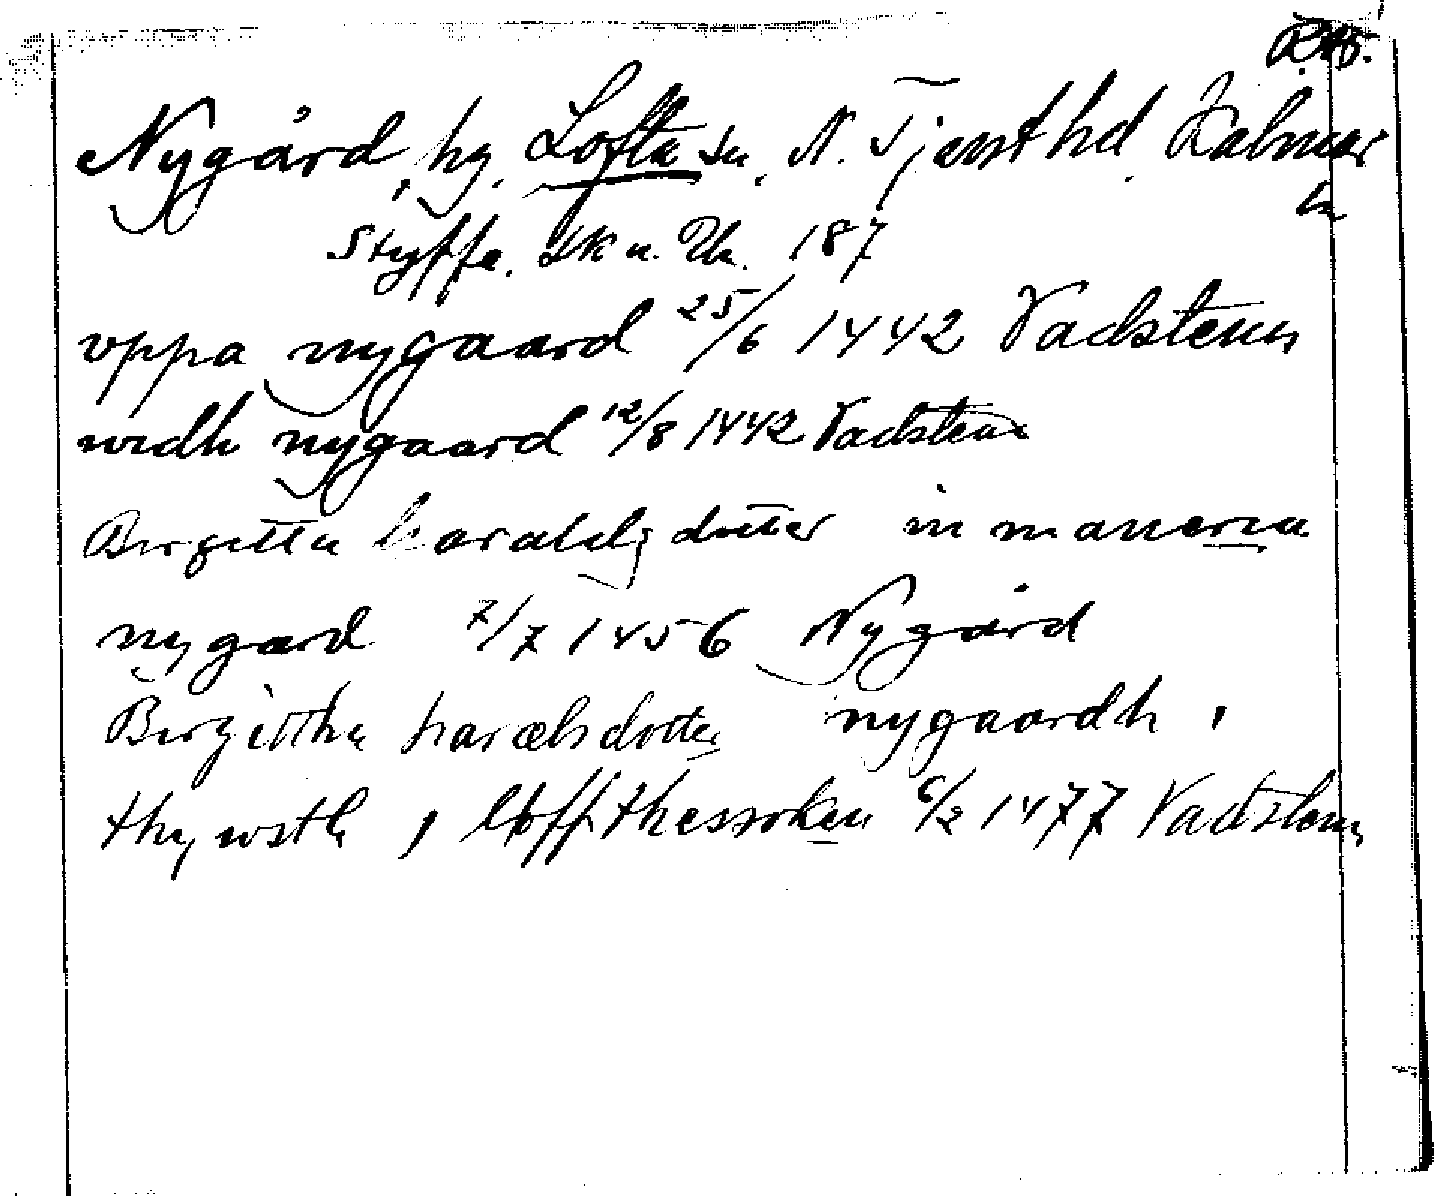 Nygård, hg. Lofta sn. N. Tjust hd Kalmar
ln
Styffe. Sk u. Un. 187
vppa nygaard 25/6 1442 Vadstena
widh nygaard 12/8 1442 Vadstena
Birgitta haralds dotter in maneria
nygard 7/7 1456 Nygård
Birgittha haraldsdotter nygaardh i
thywsth i lofftthessoken 6/2 1477 Vadstena